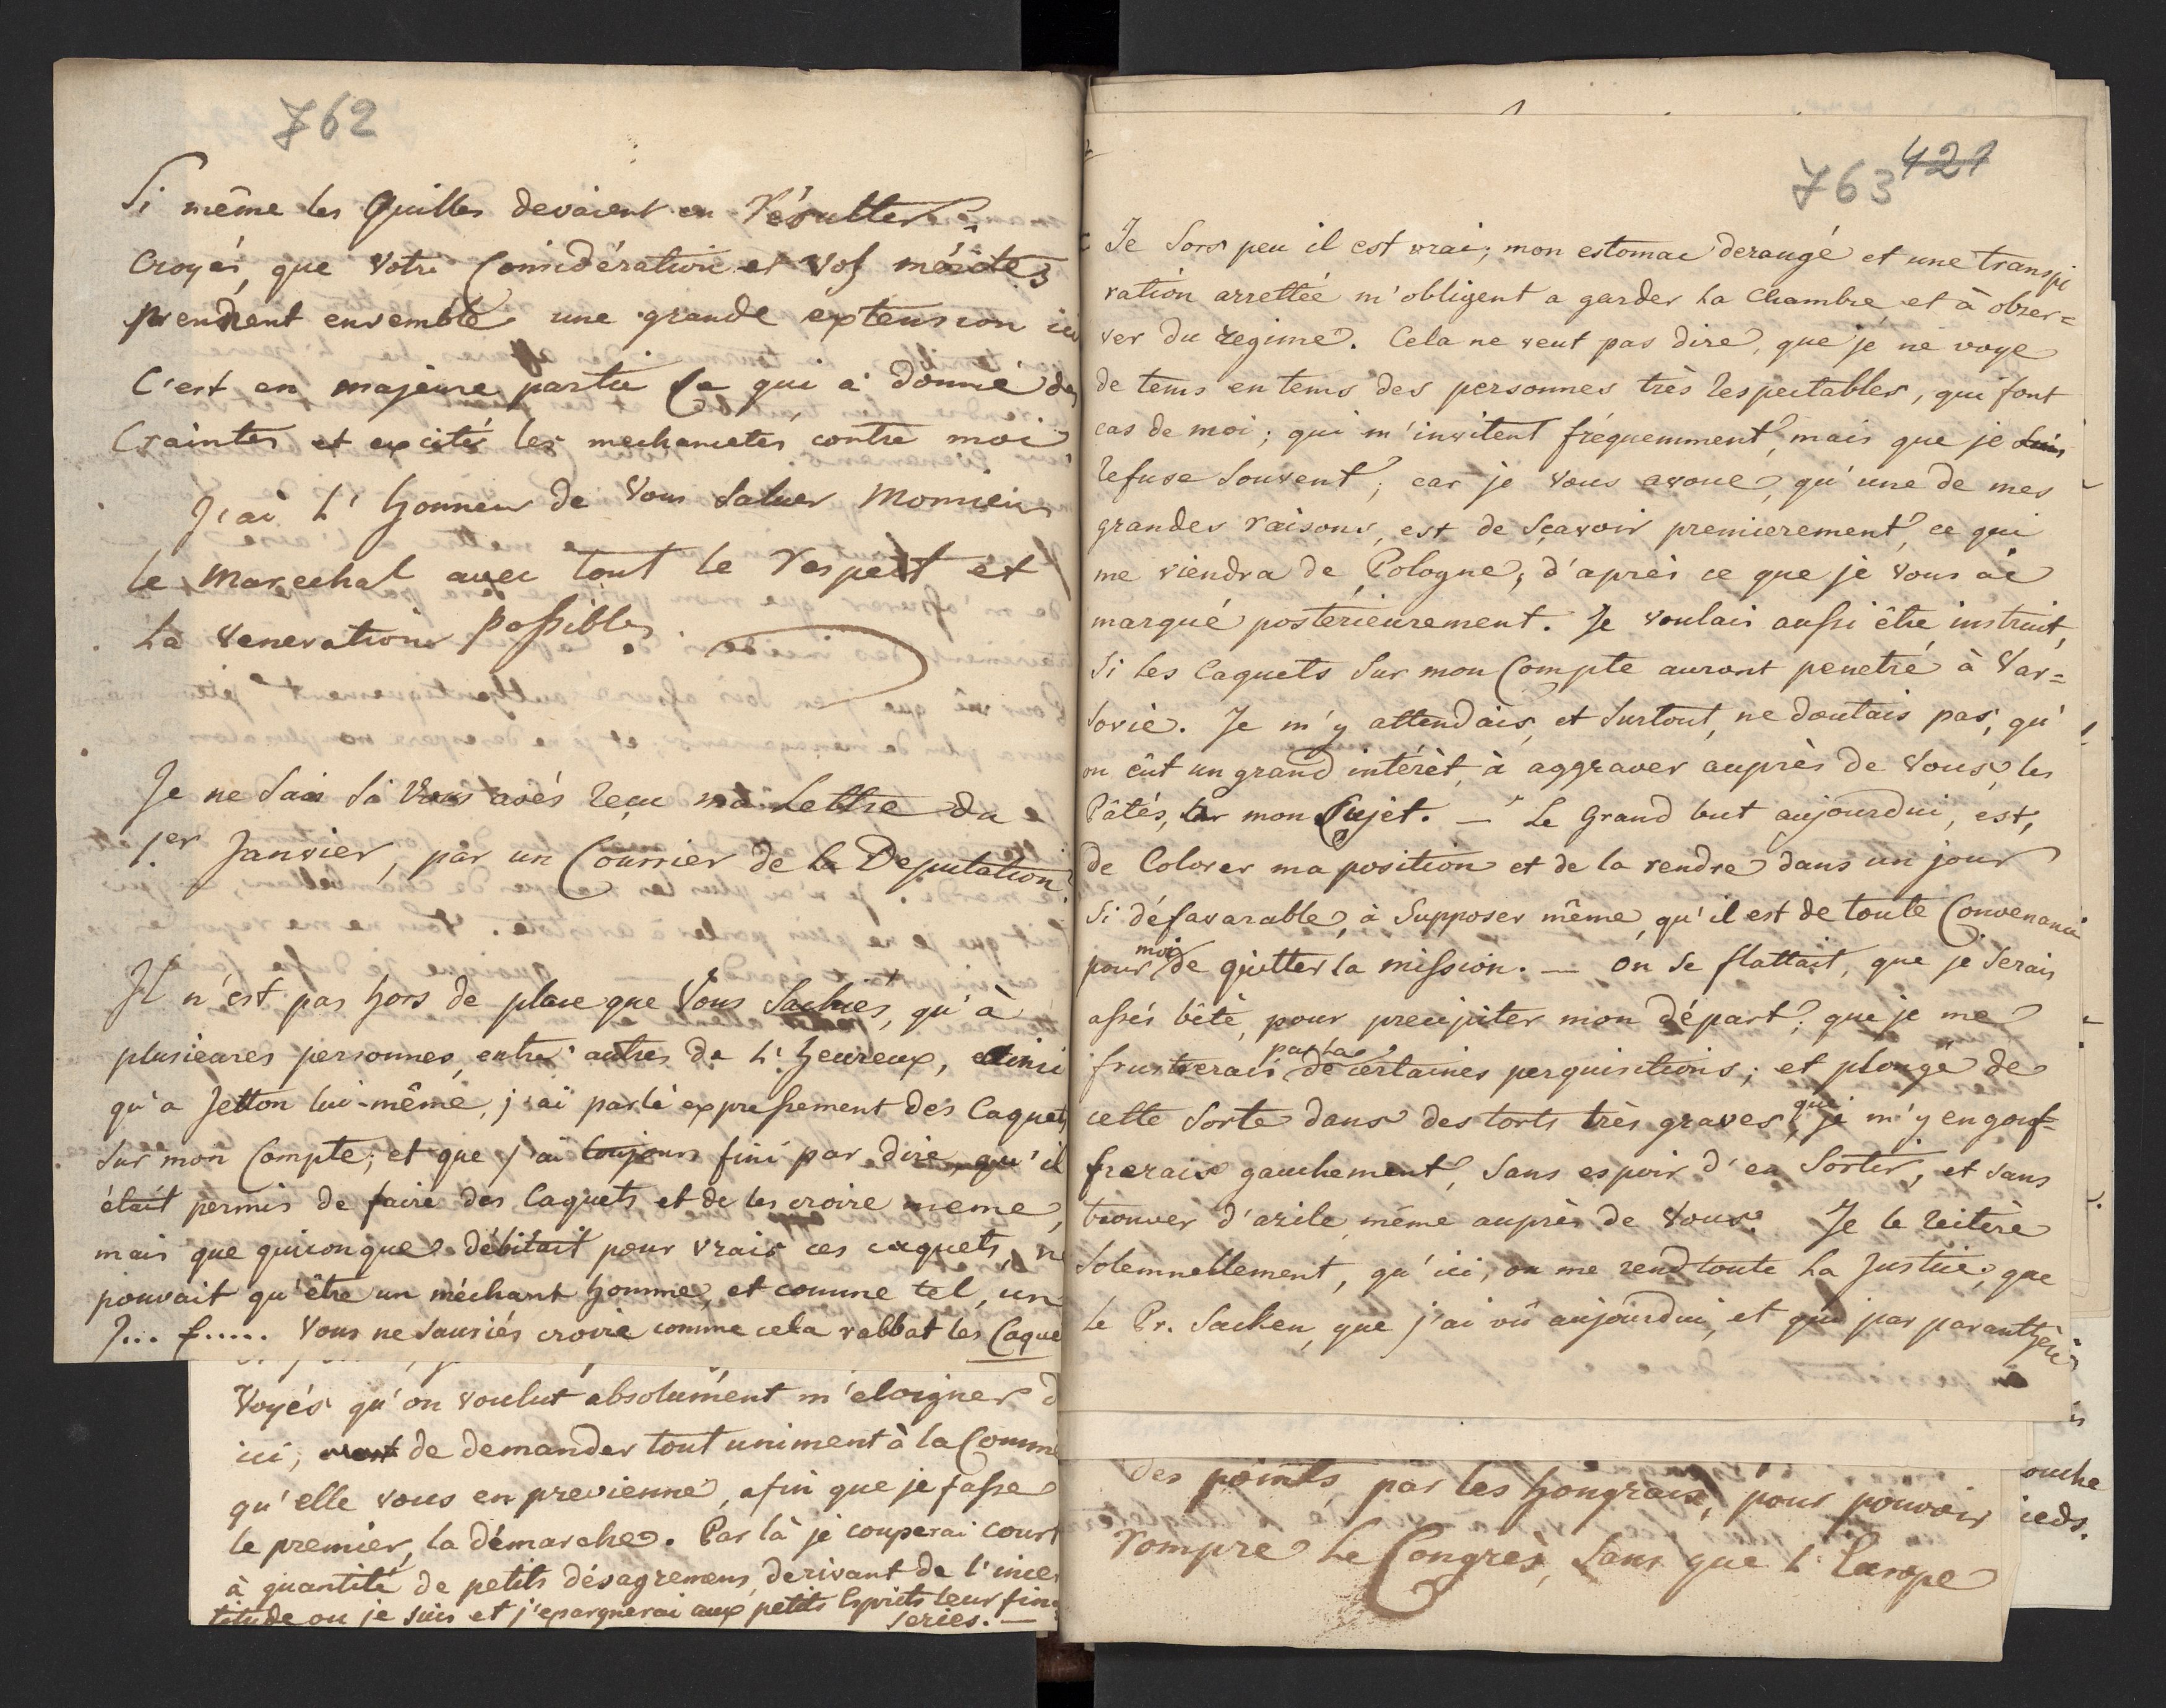 762
Si même les Quilles devaient en résulter.
Croyés, que Votre Considération et Vos mérites
prendrent ensemble une grande extension ici
C'est en majeure partie ce qui a donné des
Craintes et excités les mechancetés contre moi
J'ai L'honneur de Vous Saluer Monsieur
le Marechal avec tout le respect et
La Veneration possible.
Je ne Sais Si Vous avés reçu ma Lettre du
1.er Janvier, par un Courrier de la Deputation.
Il n'est pas hors de place que Vous Sachies, qu'à
plusieures personnes, entre autres de L'heureux, ainsi
qu'a Jetton lui-même, j'ai parlé expressement des Caquets
Sur mon Compte; et que j'ai toujours fini par dire, qu'il
était permis de faire des Caquets et de les croire meme,
mais que quiconque débitait pour vrais ces caquets, ne
pouvait qu'être un méchant homme, et comme tel, un
J... f..... Vous ne Sauriés croire comme cela rabbat les Caque
Voyés qu'on voulut absolument m'eloigner d
ici, de demander tout uniment à la Comm
qu'elle vous en previenne, afin que je fasse
le premier, la démarche. Par là je couperai court
à quantité de petits désagremens, derivant de l'incer
titude ou je suis et j'epargnerai aux petits Esprits leur fin
series. —
763 421
Je Sors peu il est vrai; mon estomac derangé et une transpi
ration arrettée m'obligent a garder La Chambre, et à obser=
ver du regime. Cela ne veut pas dire, que je ne voye
de tems en tems des personnes très respectables, qui font
cas de moi; qui m'invitent fréquemment, mais que je
refuse Souvent; car je Vous avoue, qu'une de mes
grandes raisons, est de Sçavoir premierement, ce qui
me viendra de Pologne, d'après ce que je Vous ai
marqué posterieurement. Je voulais aussi être instruit,
Si les Caquets Sur mon Compte auront penetré à Var=
sovie. Je m'y attendais, et Surtout, ne doutais pas, qu'
on eût un grand intérèt, à aggraver auprès de Vous, les
Pâtés, sur mon Sujet. — Le Grand but aujourdui, est,
de Colorer ma position et de la rendre dans un jour
Si défavarable, à Supposer même, qu'il est de toute Convenance
pour moi de quitter la mission. — On Se flattait, que je Serais
assés bête, pour precipiter mon départ; que je me
frustrerais par la de certaines perquisitions; et plongé de
cette Sorte dans des torts très graves, que je m'y engouf=
frerais gauchement, Sans espoir d'en Sortir, et Sans
trouver d'azile, même auprès de Vous. Je le reitère
Solemnellement, qu'ici, on me rend toute La Justice, que
le Pr. Sacken, que j'ai vû aujourdui, et qui par paranthèse
des points par les hongrais, pour pouvoir
rompre Le Congrès, Sans que L'Europe
ouche
ieds.